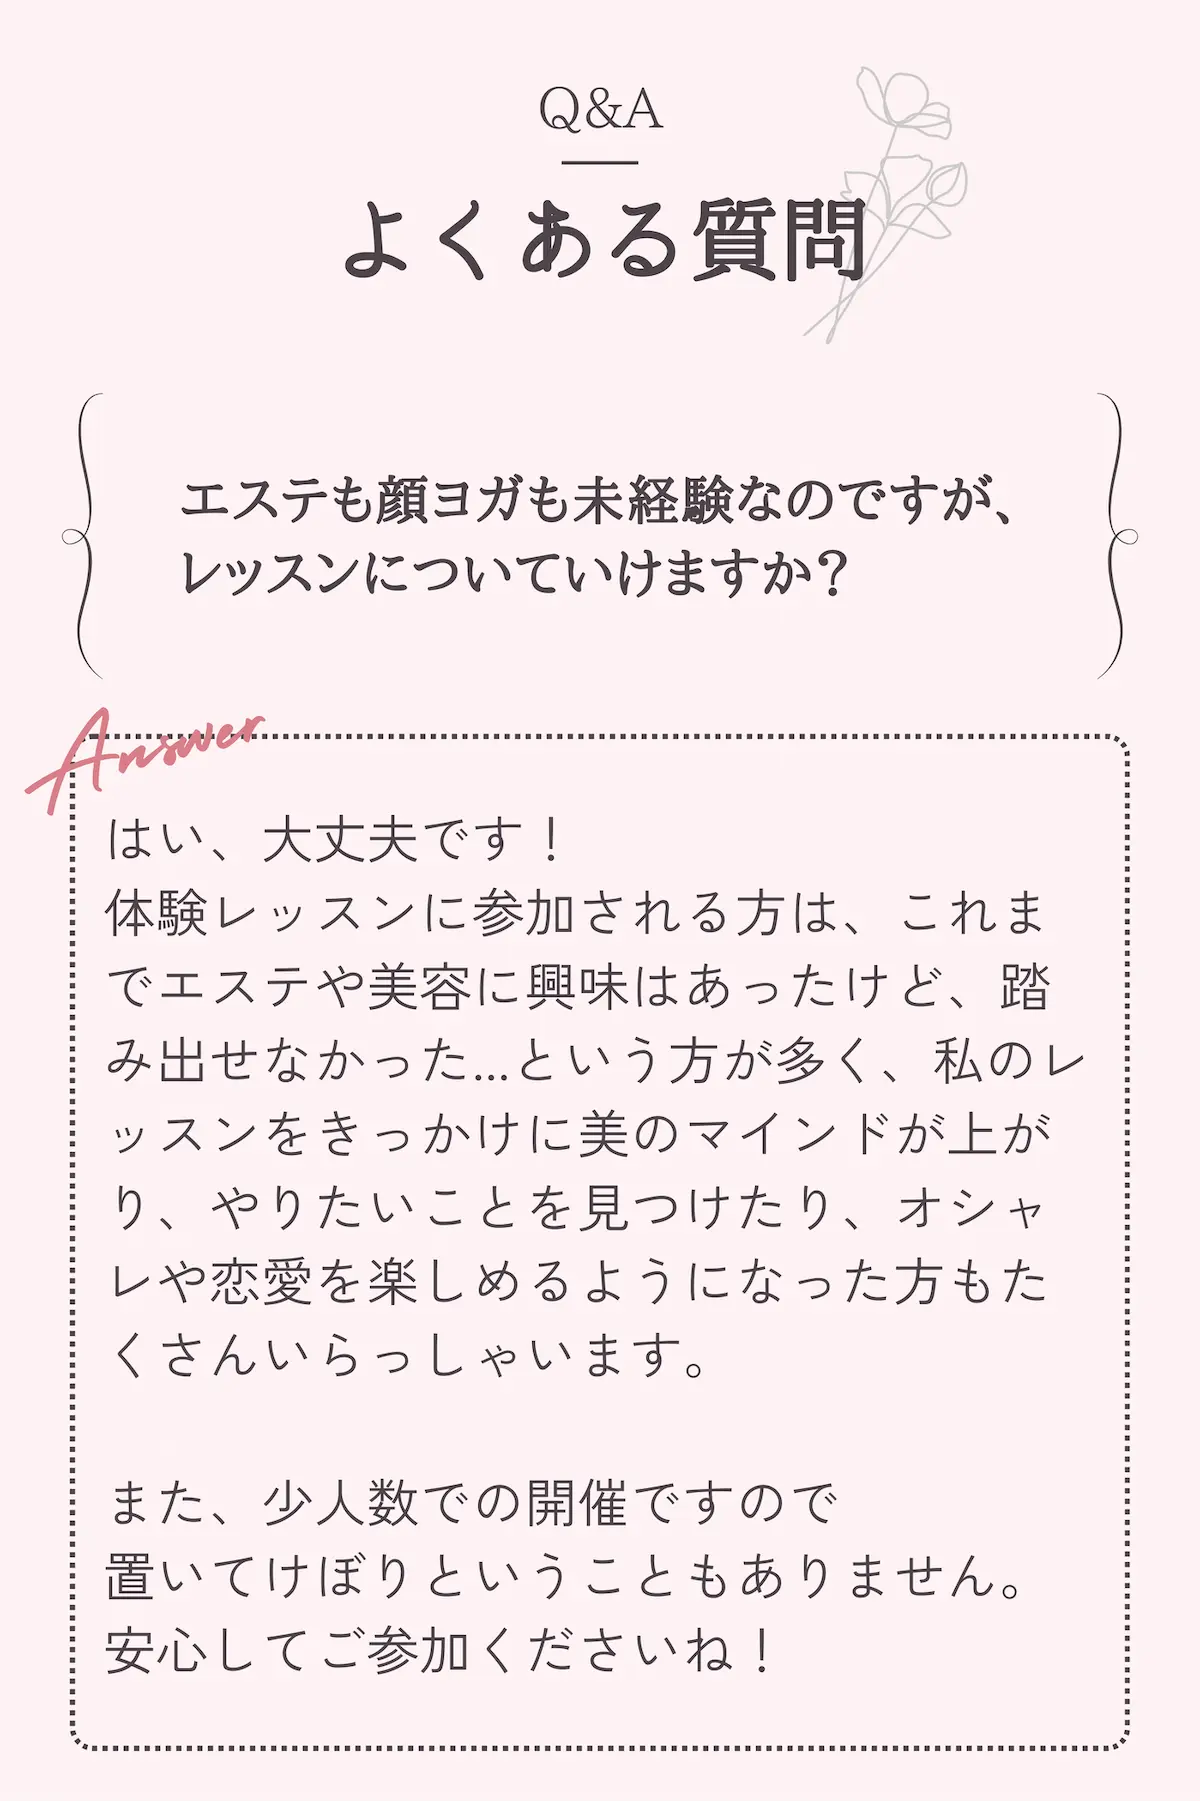 Q&A
よくある質問
エステも顔ヨガも未経験なのですが、
レッスンについていけますか？
Answer
はい、大丈夫です！
体験レッスンに参加される方は、これま
でエステや美容に興味はあったけど、踏
み出せなかった...という方が多く、私のレ
ッスンをきっかけに美のマインドが上が
り、やりたいことを見つけたり、オシャ
レや恋愛を楽しめるようになった方もた
くさんいらっしゃいます。
また、少人数での開催ですので
置いてけぼりということもありません。
安心してご参加くださいね！